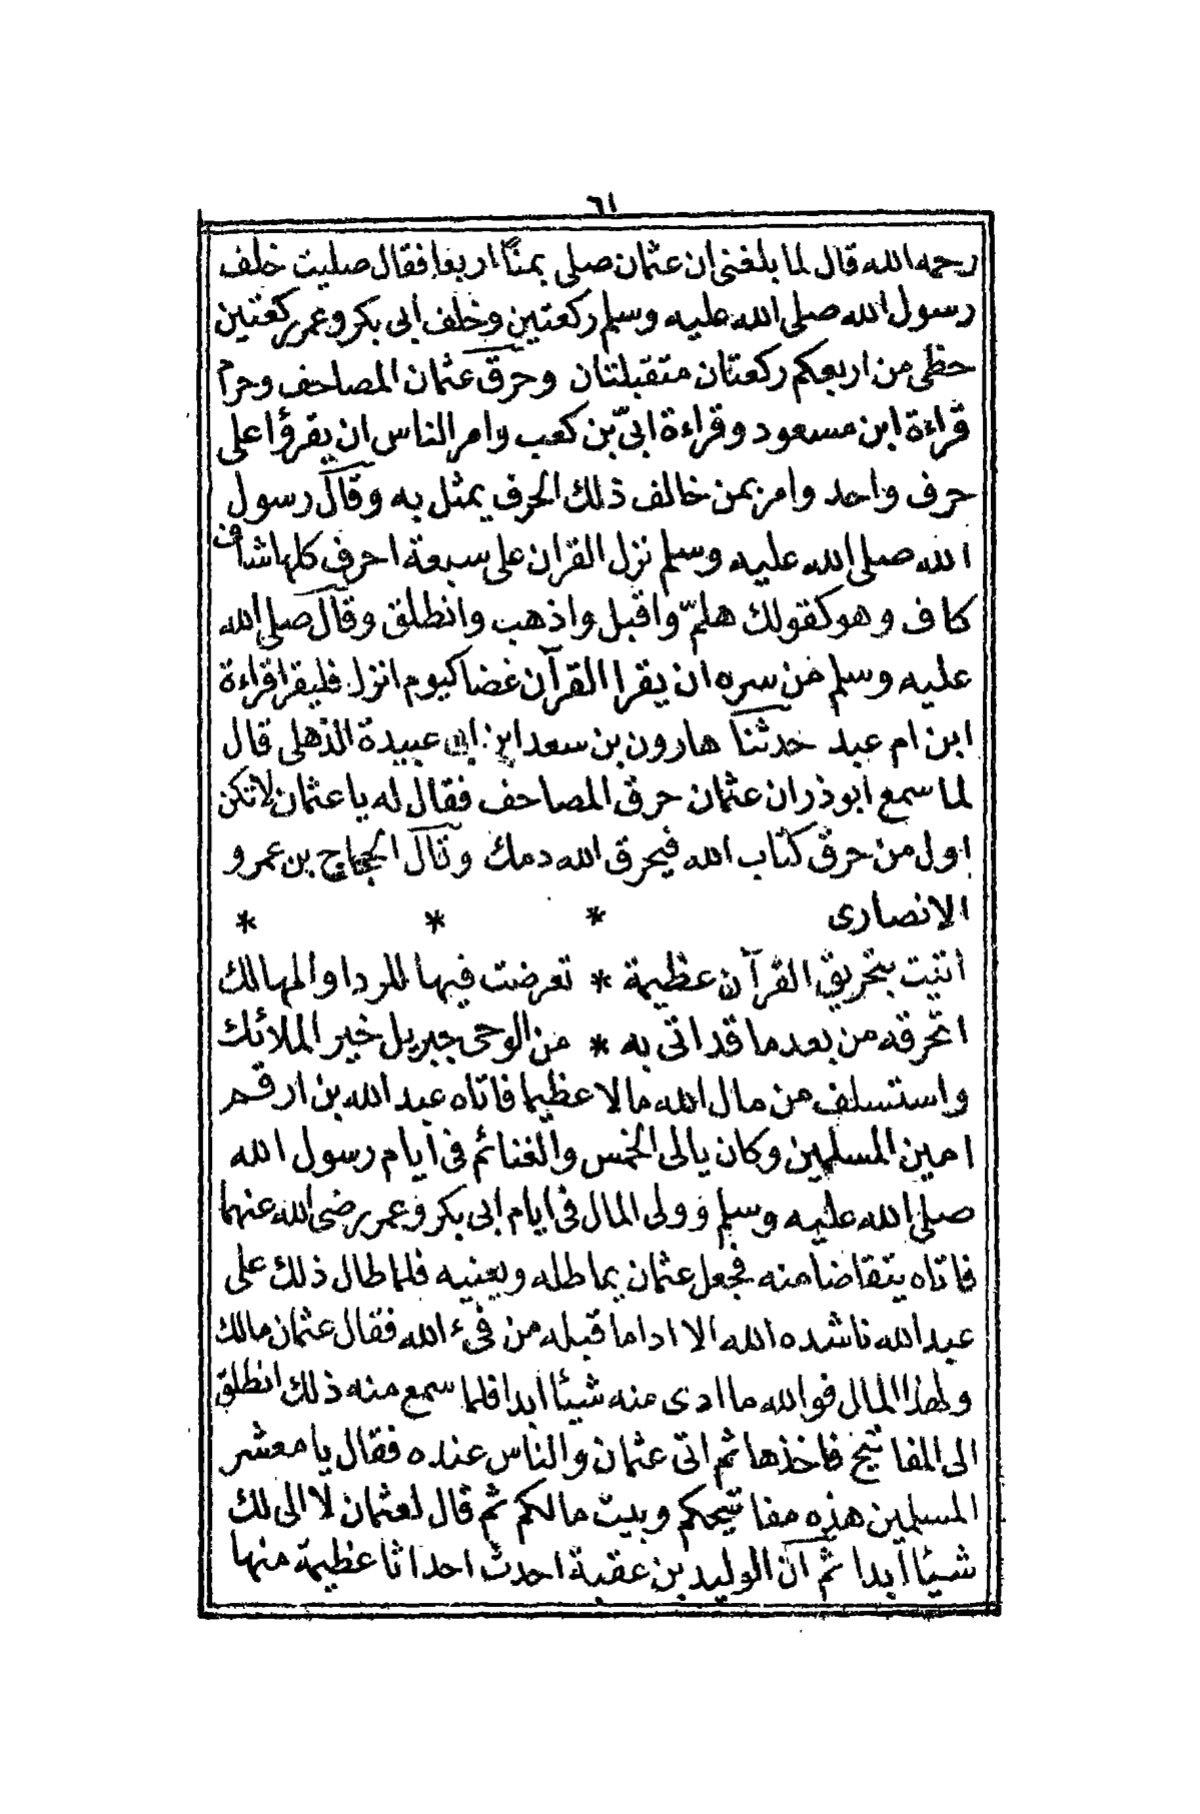 ٦١
رحمه الله قال لما بلغنى ان عثمان صلى بمنًا اربعا فقال صليت خلف
رسول الله صلى الله عليه وسلم ركعتين وخلف ابى بكر وعمر ركعتين
حظى من اربعكم ركعتان متقبلتان وحرق عثمان المصاحف وحرم
قراءة ابن مسعود وقراءة ابىّ بن كعب وامر الناس ان يقرؤا على
حرف واحد وامر بمن خالف ذلك الحرف يمثل به وقال رسول
الله صلى الله عليه وسلم نزل القران على سبعة احرف كلها شاف
كاف وهو كقولك هلمّ واقبل واذهب وانطلق وقال صلى الله
عليه وسلم من سره ان يقرا القرآن غضا كيوم انزل فليقرا قراءة
ابن ام عبد حدثنا هارون بن سعد ابن ابى عبيدة الذهلى قال
لما سمع ابوذر ان عثمان حرق المصاحف فقال له يا عثمان لا تكن
اول من حرق كتاب الله فيحرق الله دمك وقال الحجاج بن عمرو
الانصارى * * *
اتيت بتحريق القرآن عظيمة * تعرضت فيها للردا والمهالك
اتحرقه من بعد ما قد اتى به * من الوحى جبريل خير الملائك
واستسلف من مال الله مالا عظيما فاتاه عبد الله بن ارقم
امين المسلمين وكان يالى الخمس والغنائم فى ايام رسول الله
صلى الله عليه وسلم وولى المال فى ايام ابى بكر وعمر رضى الله عنهما
فاتاه يتقاضا منه فجعل عثمان يماطله ويعنيه فلما طال ذلك على
عبد الله ناشده الله الا ادا ما قبله من فىء الله فقال عثمان مالك
ولهذا المال فوالله ما ادى منه شيئا ابدا فلما سمع منه ذلك انطلق
الى المفاتيح فاخذها ثم اتى عثمان والناس عنده فقال يا معشر
المسلمين هذه مفاتيحكم وبيت مالكم ثم قال لعثمان لا الى لك
شيئا ابدا ثم ان الوليد بن عقبة احدث احداثا عظيمة منها